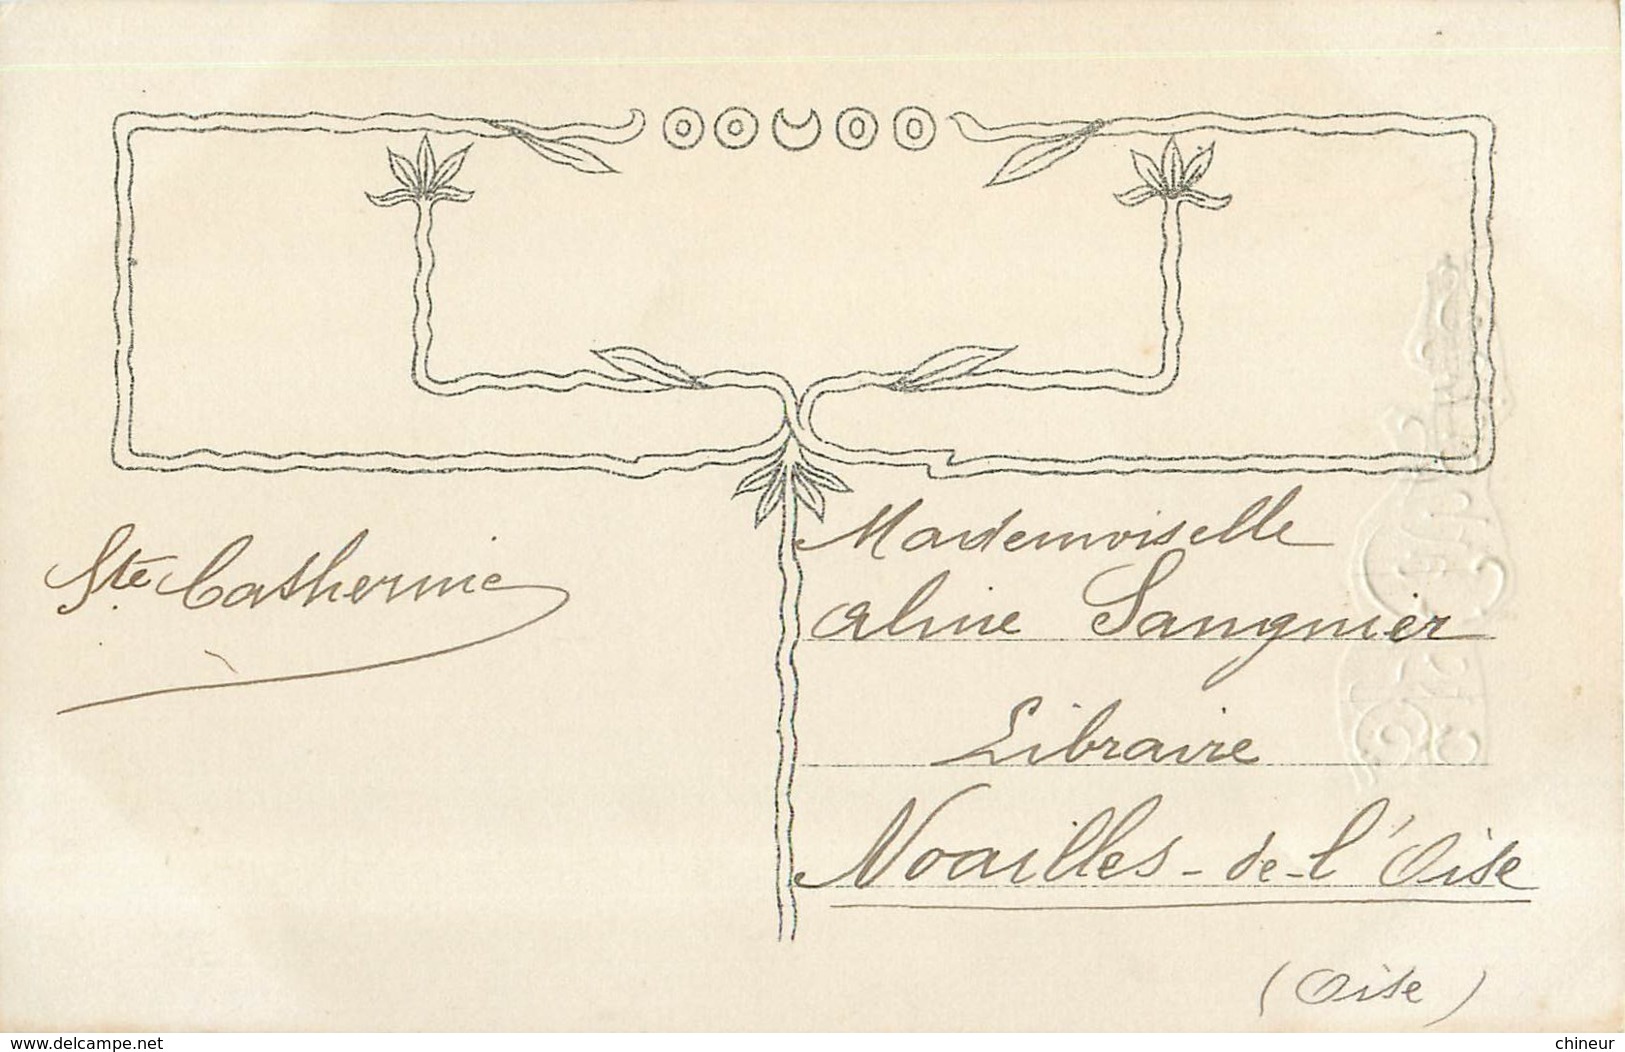 Ste Catherine
Mademoiselle
Aline Sangnier
Libraire
Noailles-de-l'Oise
(Oise)
www.delcampe.net
chineur